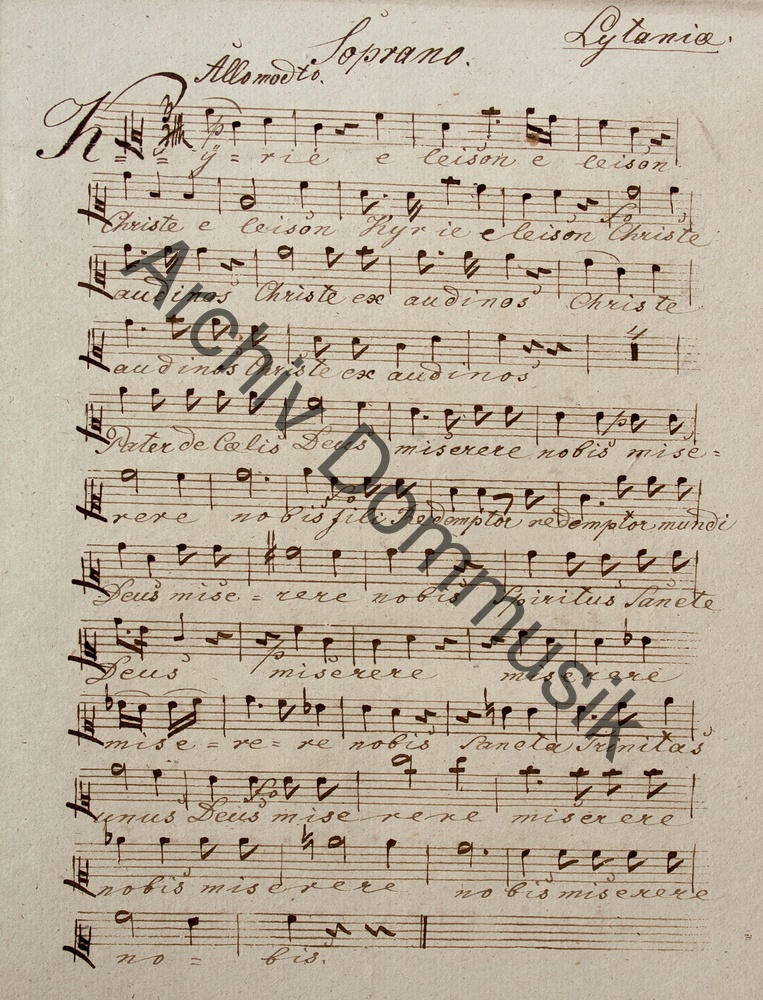 Lytaniæ.
Soprano.
Allo modto.
Kÿ = rie e leison e leison
Christe e leison Kyrie e leison Christe
fo
audi nos Christe ex audi nos Christe
audi nos Christe ex audi nos
4
Pater de Cœlis Deus miserere nobis mise =
p
rere nobis fili Redemptor redemptor mundi
fo
Deus mise = rere nobis Spiritus Sancte
Deus miserere miserere
p
mise = re = re nobis Sancta Trinitas
unus Deus mise rere miserere
fo
nobis miserere nobis miserere
no = bis.
Archiv Dommusik